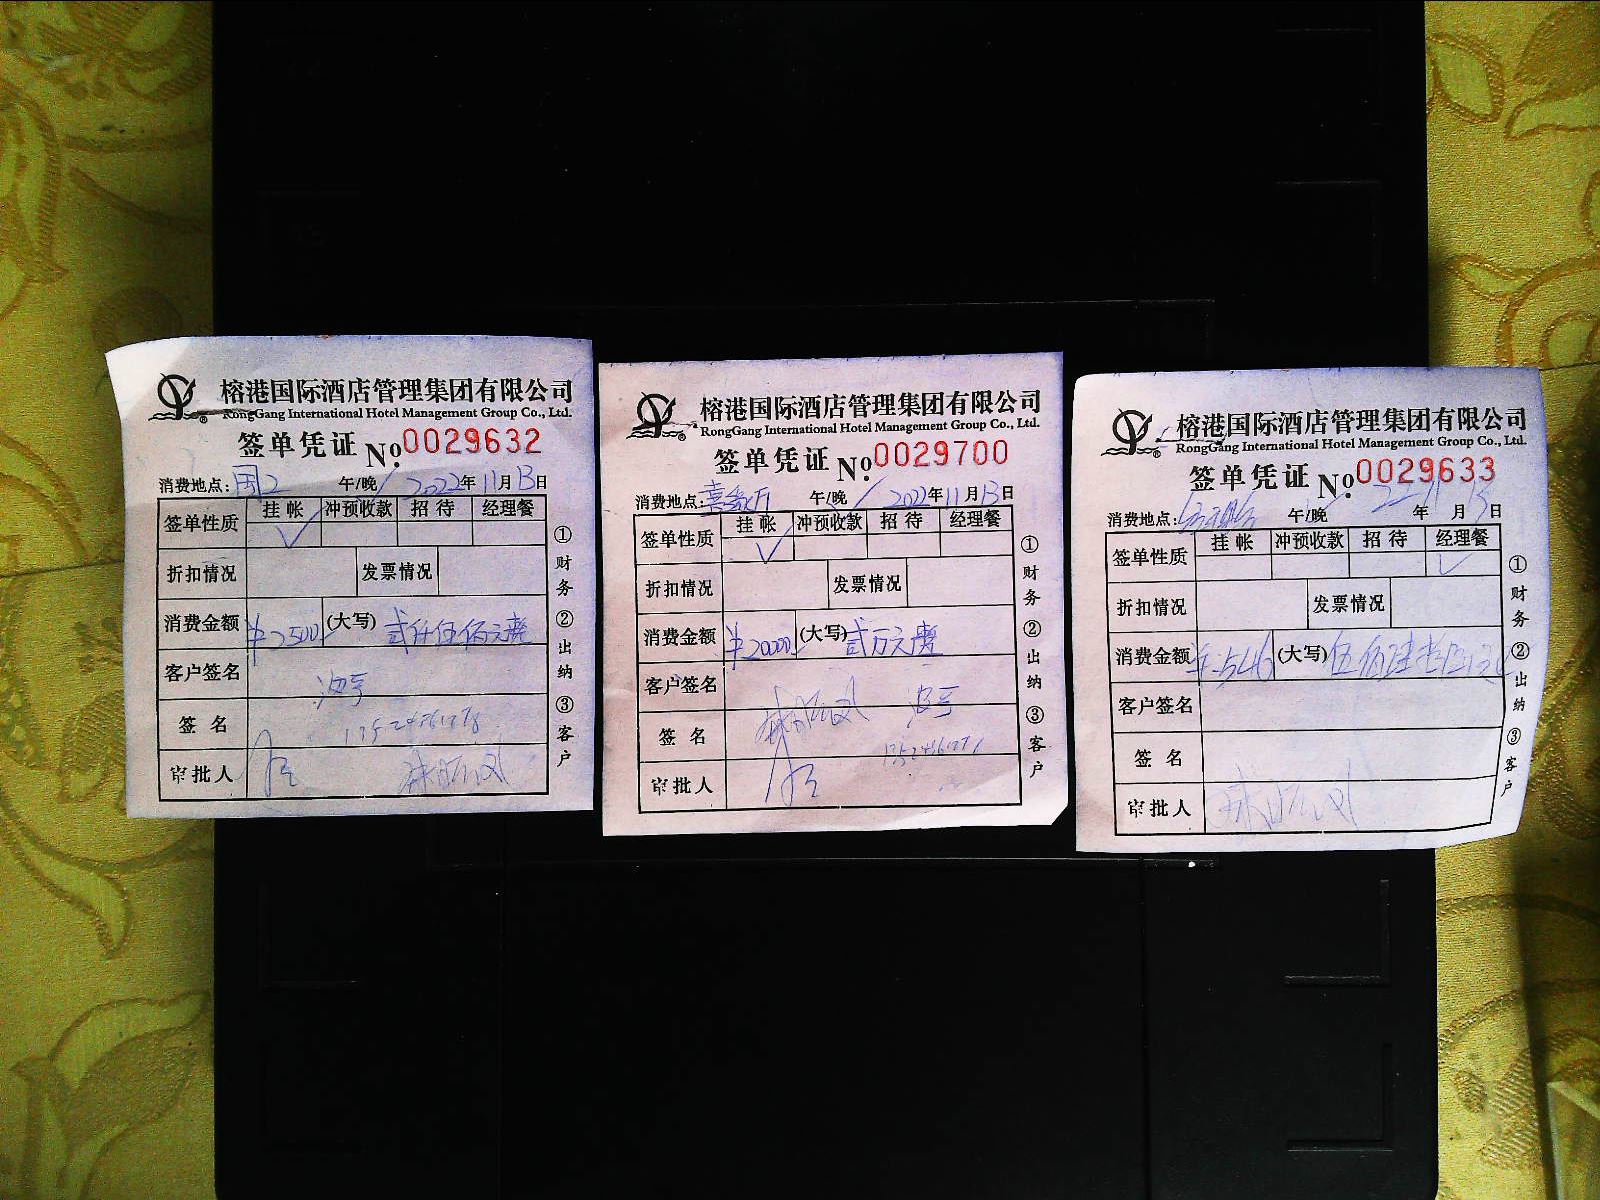 榕港国际酒店管理集团有限公司
RongGang International Hotel Management Group Co., Ltd.
签单凭证 No. 0029632
消费地点: 国2 午/晚 2022年11月13日
签单性质 挂帐 冲预收款 招待 经理餐
✓
折扣情况 发票情况
消费金额 ¥2500 (大写) 贰仟伍佰元整
客户签名
签名
审批人
①财务 ②出纳 ③客户
榕港国际酒店管理集团有限公司
RongGang International Hotel Management Group Co., Ltd.
签单凭证 No. 0029700
消费地点: 喜 厅 午/晚 2022年11月13日
签单性质 挂帐 冲预收款 招待 经理餐
✓
折扣情况 发票情况
消费金额 ¥20000 (大写) 贰万元整
客户签名
签名
审批人
①财务 ②出纳 ③客户
榕港国际酒店管理集团有限公司
RongGang International Hotel Management Group Co., Ltd.
签单凭证 No. 0029633
消费地点: 午/晚 年 月 日
签单性质 挂帐 冲预收款 招待 经理餐
✓
折扣情况 发票情况
消费金额 (大写)
客户签名
签名
审批人
①财务 ②出纳 ③客户